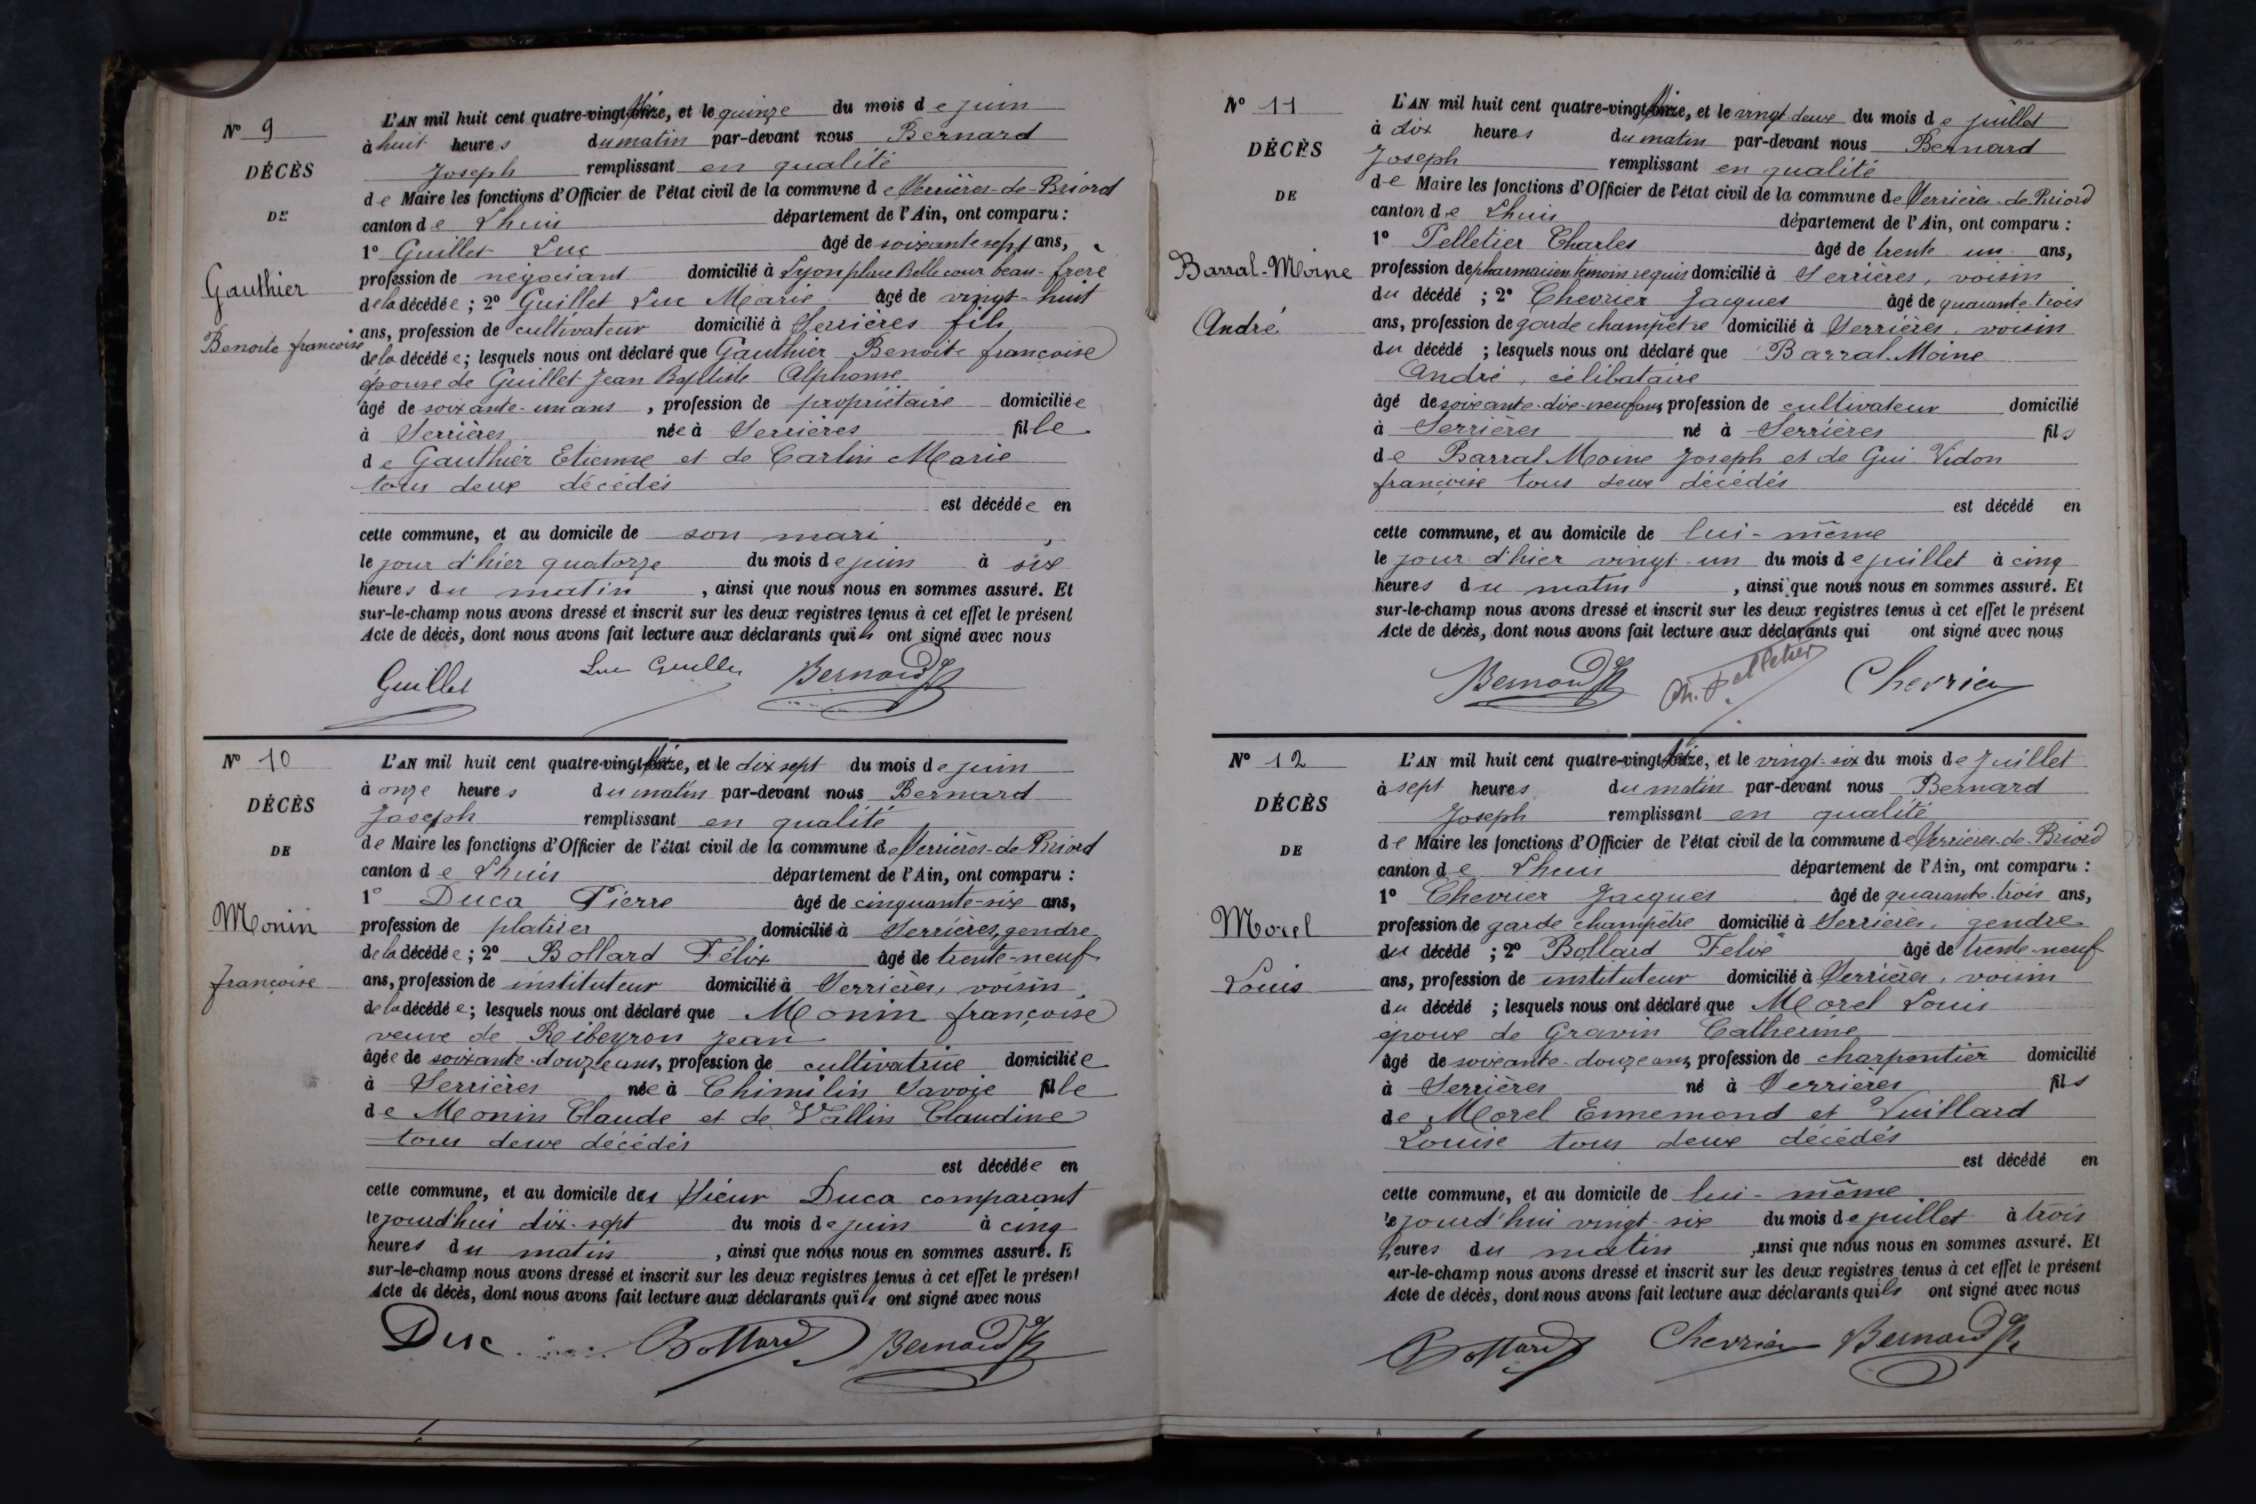 N° 9
DÉCÈS
DE
Gauthier
Benoite françoise
L'AN mil huit cent quatre-vingt, et le quinze du mois de juin
à huit heures du matin par-devant nous Bernard
Joseph remplissant en qualité
de Maire les fonctions d'Officier de l'état civil de la commune de Serrières-de-Briord
canton de Lhuis département de l'Ain, ont comparu :
1° Guillet Luc âgé de soixante sept ans,
profession de négociant domicilié à Lyon place Bellecour beau-frère
de la décédée ; 2° Guillet Luc Marie âgé de vingt-huit
ans, profession de cultivateur domicilié à Serrières fils
de la décédée ; lesquels nous ont déclaré que Gauthier Benoite françoise
épouse de Guillet Jean Baptiste Alphonse
âgé de soixante-un ans , profession de propriétaire domiciliée
à Serrières née à Serrières fille
de Gauthier Etienne et de Carlin Marie
tous deux décédés
est décédée en
cette commune, et au domicile de son mari
le jour d'hier quatorze du mois de juin à six
heures du matin , ainsi que nous nous en sommes assuré. Et
sur-le-champ nous avons dressé et inscrit sur les deux registres tenus à cet effet le présent
Acte de décès, dont nous avons fait lecture aux déclarants qui ls ont signé avec nous
Guillet Luc Guillet Bernard J
N° 10
DÉCÈS
DE
Monin
françoise
L'AN mil huit cent quatre-vingt, et le dix sept du mois de juin
à onze heures du matin par-devant nous Bernard
Joseph remplissant en qualité
de Maire les fonctions d'Officier de l'état civil de la commune de Serrières-de-Briord
canton de Lhuis département de l'Ain, ont comparu :
1° Duca Pierre âgé de cinquante-six ans,
profession de platrier domicilié à Serrières, gendre
de la décédée ; 2° Bollard Félix âgé de trente-neuf
ans, profession de instituteur domicilié à Serrières, voisin
de la décédée ; lesquels nous ont déclaré que Monin françoise
veuve de Ribeyron Jean
âgée de soixante-douze ans, profession de cultivatrice domiciliée
à Serrières née à Chimilin Savoie fille
de Monin Claude et de Vallin Claudine
tous deux décédés
est décédée en
cette commune, et au domicile des Sieur Duca comparant
le jourd'hui dix-sept du mois de juin à cinq
heures du matin , ainsi que nous nous en sommes assuré. E
sur-le-champ nous avons dressé et inscrit sur les deux registres tenus à cet effet le présent
Acte de décès, dont nous avons fait lecture aux déclarants qui ls ont signé avec nous
Duc Bollard Bernard J
N° 11
DÉCÈS
DE
Barral-Moine
André
L'AN mil huit cent quatre-vingt, et le vingt deux du mois de juillet
à dix heures du matin par-devant nous Bernard
Joseph remplissant en qualité
de Maire les fonctions d'Officier de l'état civil de la commune de Serrières-de-Briord
canton de Lhuis département de l'Ain, ont comparu :
1° Pelletier Charles âgé de trente un ans,
profession de pharmacien temoin requis domicilié à Serrières, voisin
du décédé ; 2° Chevrier Jacques âgé de quarante trois
ans, profession de garde champêtre domicilié à Serrières, voisin
du décédé ; lesquels nous ont déclaré que Barral Moine
André, célibataire
âgé de soixante-dix-neuf ans, profession de cultivateur domicilié
à Serrières né à Serrières fils
de Barral Moine Joseph et de Gui Vidon
françoise tous deux décédés
est décédé en
cette commune, et au domicile de lui-même
le jour d'hier vingt-un du mois de juillet à cinq
heures du matin , ainsi que nous nous en sommes assuré. Et
sur-le-champ nous avons dressé et inscrit sur les deux registres tenus à cet effet le présent
Acte de décès, dont nous avons fait lecture aux déclarants qui ont signé avec nous
Bernard J Ch. Pelletier Chevrier
N° 12
DÉCÈS
DE
Morel
Louis
L'AN mil huit cent quatre-vingt, et le vingt-six du mois de juillet
à sept heures du matin par-devant nous Bernard
Joseph remplissant en qualité
de Maire les fonctions d'Officier de l'état civil de la commune de Serrières-de-Briord
canton de Lhuis département de l'Ain, ont comparu :
1° Chevrier Jacques âgé de quarante-trois ans,
profession de garde champêtre domicilié à Serrières, gendre
du décédé ; 2° Bollard Felix âgé de trente-neuf
ans, profession de instituteur domicilié à Serrières, voisin
du décédé ; lesquels nous ont déclaré que Morel Louis
époux de Gravin Catherine
âgé de soixante-douze ans, profession de charpentier domicilié
à Serrières né à Serrières fils
de Morel Ennemond et Vuillard
Louise tous deux décédés
est décédé en
cette commune, et au domicile de lui-même
le jourd'hui vingt-six du mois de juillet à trois
heures du matin , ainsi que nous nous en sommes assuré. Et
sur-le-champ nous avons dressé et inscrit sur les deux registres tenus à cet effet le présent
Acte de décès, dont nous avons fait lecture aux déclarants qui ls ont signé avec nous
Bollard Chevrier Bernard J